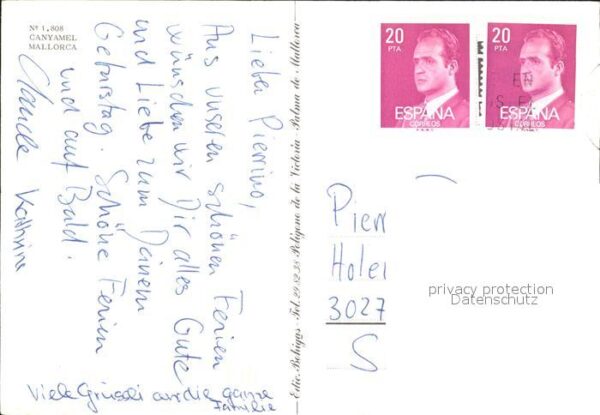 Nº 1.808
CANYAMEL
MALLORCA
Lieber Pierrino,
Aus unseren schönen Ferien
wünschen wir Dir alles Gute
und Liebe zum Deinem
Geburtstag. Schöne Ferien
und auf Bald.
Claude Kathrine
Viele Grüessli an die ganze
Familie
Edic. Bohigas - Tel. 29.82.38 - Polígono de la Victoria - Palma de Mallorca
20
PTA
ESPAÑA
CORREOS
20
PTA
ESPAÑA
CORREOS
Pierr
Holei
3027
S
privacy protection
Datenschutz